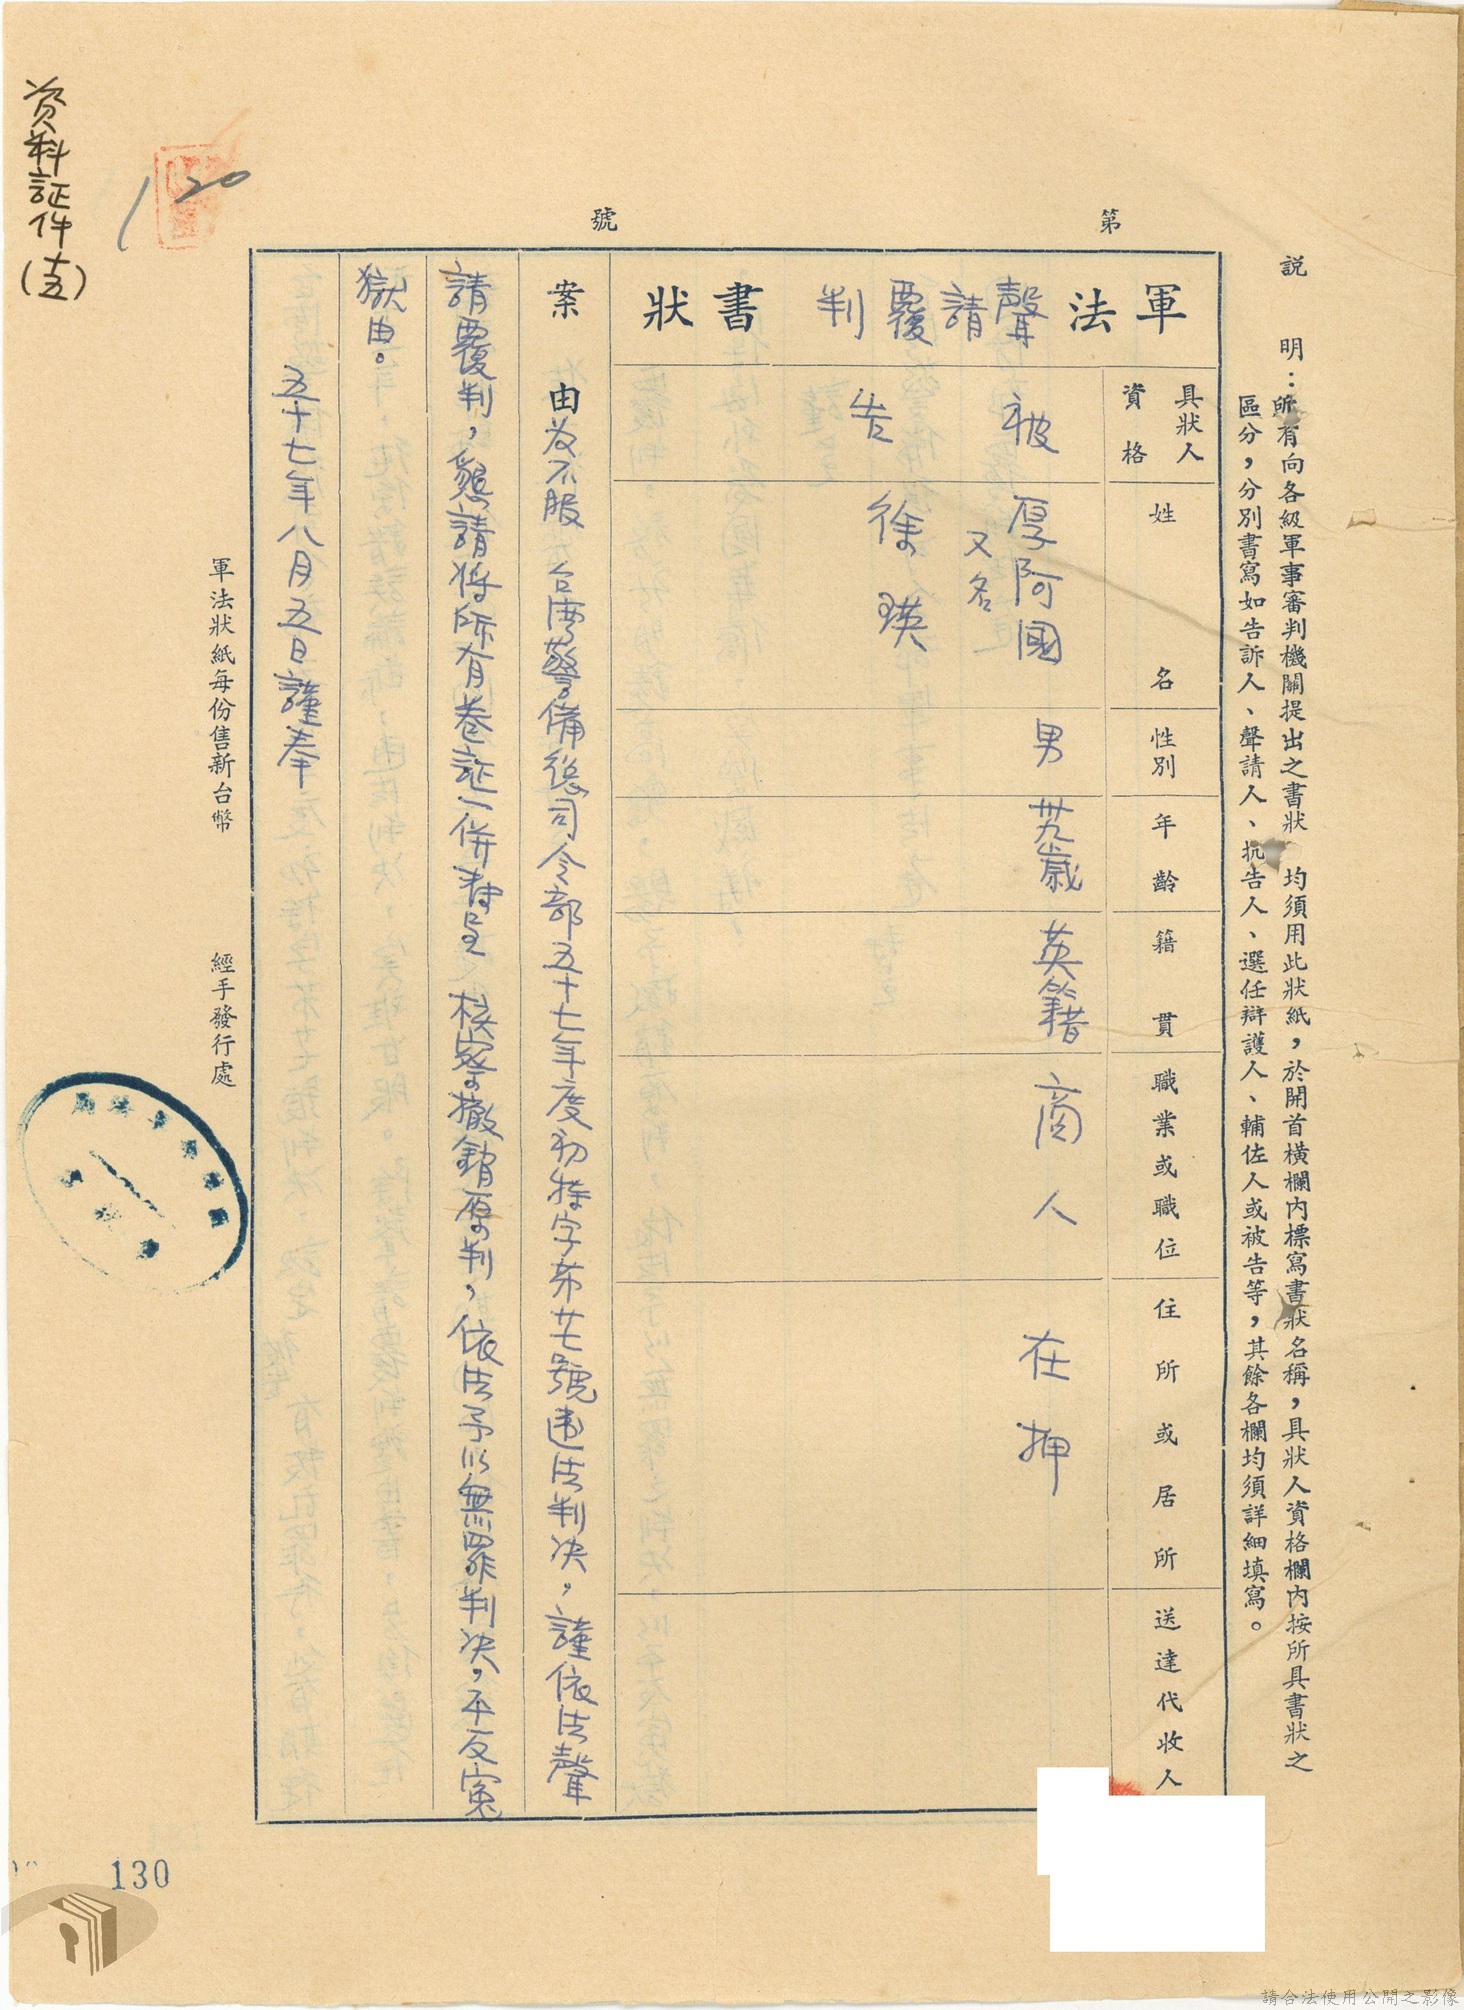 說　明：所有向各級軍事審判機關提出之書狀　均須用此狀紙，於開首橫欄內標寫書狀名稱，具狀人資格欄內按所具書狀之
區分，分別書寫如告訴人、聲請人、抗告人、選任辯護人、輔佐人或被告等，其餘各欄均須詳細填寫。
第　號
軍法聲請覆判書狀
具狀人資格
姓名
性別
年齡
籍貫
職業或職位
住所或居所
送達代收人
被告
厚阿國
又名
徐瑛
男
卅九歲
英籍
商人
在押
案由為不服　台灣警備總司令部五十七年度初特字第廿七號違法判決，謹依法聲
請覆判，懇請將所有卷証一併轉呈　核察撤銷原判，依法予以無罪判決，平反寃
獄由。
五十七年八月五日謹奉
軍法狀紙每份售新台幣　經手發行處
120
資料証件(十五)
130
請合法使用公開之影像